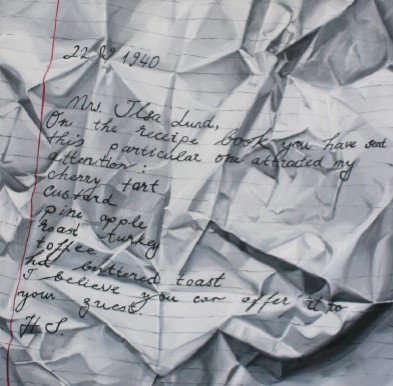 22 1940
Mrs. Ilsa Lund,
On the receipe book you have send
this particular one attracted my
attention:
cherry tart
custard
pine apple
roast turkey
toffee
hot buttered toast
I believe you can offer it to
your guest.
H.S.